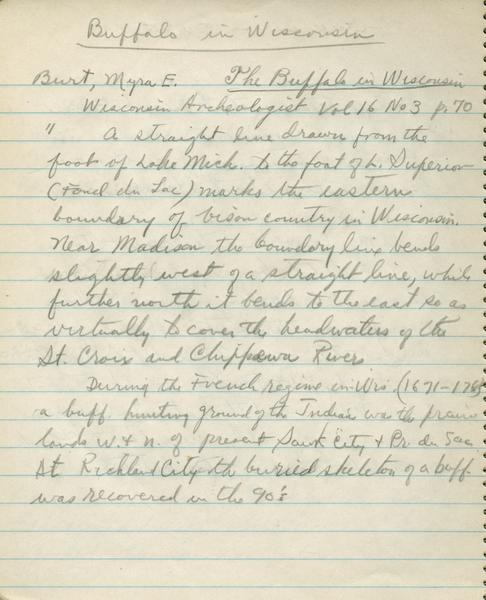 Buffalo in Wisconsin
Burt, Myra E. The Buffalo in Wisconsin
Wisconsin Archeologist Vol 16 No 3 p. 70
" A straight line drawn from the
foot of Lake Mich. to the foot of L. Superior
(Fond du Lac) marks the eastern
boundary of bison country in Wisconsin.
Near Madison the boundary line bends
slightly west of a straight line, while
further north it bends to the east so as
virtually to cover the headwaters of the
St. Croix and Chippewa Rivers
During the French regime in Wis. (1671-1765
a buff. hunting ground of the Indian was the prairie
lands w. & n. of present Sauk City & Pr. du Sac
At Richland City the buried skeleton of a buff
was recovered in the 90's